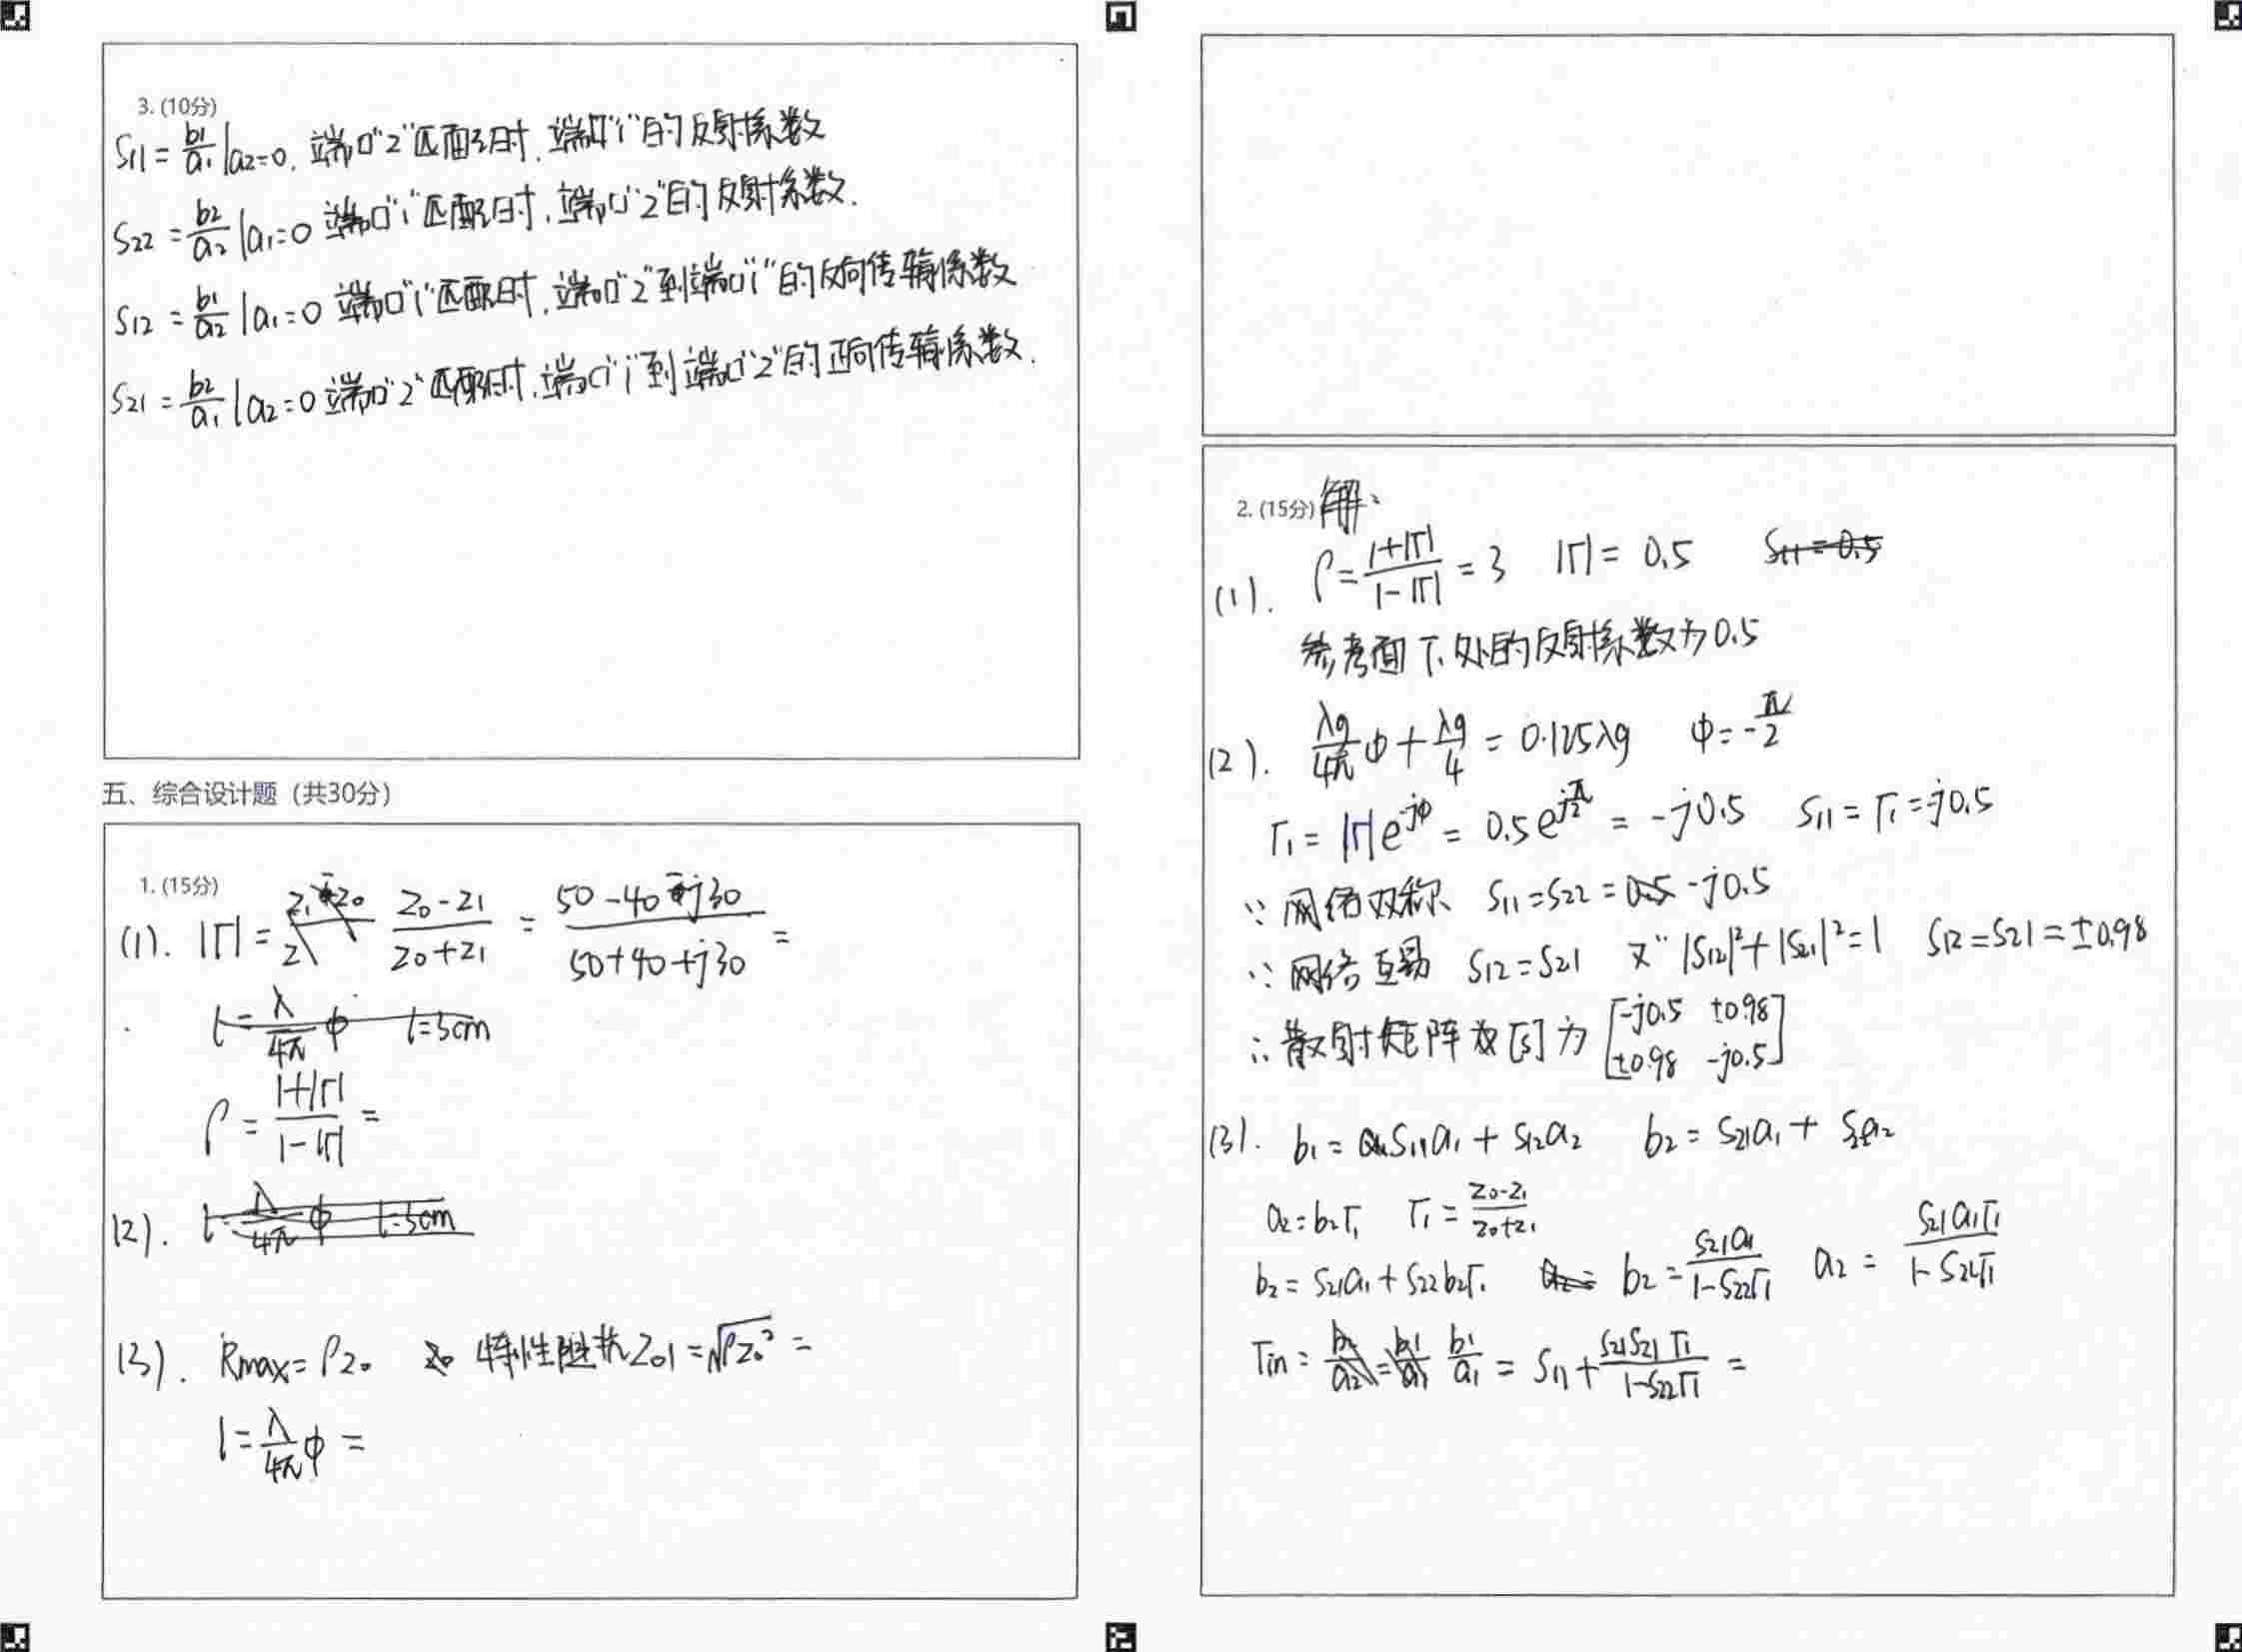 3. (10分)
S11 = b1/a1 |a2=0. 端口"2"匹配时. 端口"1"的反射系数
S22 = b2/a2 |a1=0 端口"1"匹配时, 端口"2"的反射系数.
S12 = b1/a2 |a1=0 端口"1"匹配时, 端口"2"到端口"1"的反向传输系数
S21 = b2/a1 |a2=0 端口"2"匹配时, 端口"1"到端口"2"的正向传输系数.
五、综合设计题（共30分）
1. (15分)
(1). |Γ| = (Z0-Z1)/(Z0+Z1) = (50-40-j30)/(50+40+j30) =
l = λ/4π φ l=5cm
ρ = (1+|Γ|)/(1-|Γ|) =
(2). l = λ/4π φ l=5cm
(3). Rmax = ρZ0 特性阻抗Z01 = √(ρZ0²) =
l = λ/4π φ =
2. (15分) 解:
(1). ρ = (1+|Γ|)/(1-|Γ|) = 3 |Γ| = 0.5 S11 = 0.5
参考面T1处的反射系数为0.5
(2). λg/4π φ + λg/4 = 0.125λg φ = -π/2
Γ1 = |Γ|e^-jφ = 0.5e^jπ/2 = -j0.5 S11 = Γ1 = -j0.5
∵ 网络对称 S11 = S22 = 0.5 -j0.5
∵ 网络互易 S12 = S21 又∵ |S12|² + |S21|² = 1 S12 = S21 = ±0.98
∴ 散射矩阵 [S] 为 [-j0.5 ±0.98
±0.98 -j0.5]
(3). b1 = S11a1 + S12a2 b2 = S21a1 + S22a2
a2 = b2Γ1 Γ1 = (Z0-Z1)/(Z0+Z1)
b2 = S21a1 + S22b2Γ1 a2 = b2 = S21a1/(1-S22Γ1) a2 = S21a1Γ1/(1-S22Γ1)
Γin = b2/a2 = b1/a1 b1/a1 = S11 + S21S21Γ1/(1-S22Γ1) =